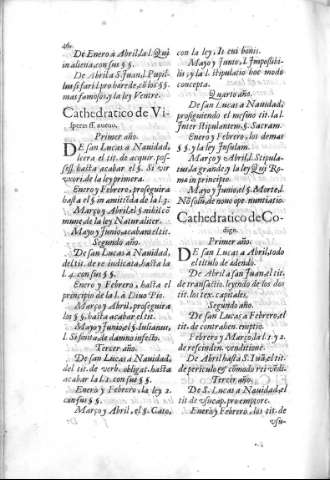 De Enero à Abril, la l. Qui
in aliena, con sus §§.
De Abril à S. Juan, l. Pupil-
lus si fari. l. pro hærede, cõ los §§.
mas famosos, y la ley Ventre.
Cathedratico de Vi-
speras ff. nueuo.
Primer año.
DE san Lucas a Nauidad,
leera el tit. de acquir. pos-
sess. hasta acabar el §. Si vir
vxori. de la ley primera.
Enero y Febrero, proseguira
hasta el § in amittẽda de la l. 3.
Março y Abril, el § nihil cõ
mune de la ley Naturaliter.
Mayo y Junio, acabarà el tit.
Segundo año.
De san Lucas a Nauidad,
del tit. de re iudicata, hasta la
l. 4. con sus §§.
Enero y Febrero, hasta el
principio de la l. à Diuo Pio.
Março y Abril, proseguira
los §§. hasta acabar el tit.
Mayo y Junio, el §. Iulianus,
l. Si finita, de damno infecto.
Tercer año.
De san Lucas a Nauidad,
del tit. de verb. obligat. hasta
acabar la l. 1. con sus §§.
Enero y Febrero, la ley 2.
con sus §§.
Março y Abril, el §. Cato,
con la ley, Ite cui bonis.
Mayo y Junio, l. Impossibi-
lis, y la l. stipulatio hoc modo
concepta.
Quarto año.
De san Lucas a Nauidad,
prosiguiendo el mesmo tit. la l.
Inter stipulantem §. Sacram.
Enero y Febrero, los demas
§§. y la ley Insulam.
Março y Abril, l. Stipula-
tus
Mayo y Junio, el §. Morte, l.
No solũ, de nouo ope. nuntiatio.
Cathedratico de Co-
digo.
Primer año.
DE san Lucas a Abril, todo
el titulo de edendo.
De Abril a san Juan el tit.
de transactio. leyendo de los dos
tit. los tex. capitales.
Segundo año.
De san Lucas a Febrero, el
tit. de contrahen. emptio.
Febrero y Março, la l. 1. y 2.
de rescinden. venditione.
De Abril hasta S. Iuã, el tit.
de periculo & cõmodo rei vẽdi.
Tercer año.
De S. Lucas a Nauidad, el
tit. de vsucap. pro emptore.
Enero y Febrero, los tit. de
vsu-